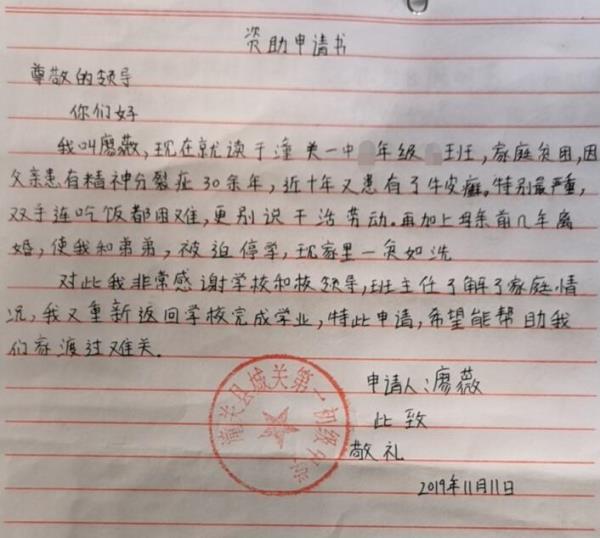 资助申请书
尊敬的领导
你们好
我叫廖薇,现在就读于潼关一中 年级 班班,家庭贫困,因
父亲患有精神分裂症30余年,近十年又患有了牛皮癣。特别严重,
双手连吃饭都困难,更别说干活劳动。再加上母亲前几年离
婚,使我和弟弟,被迫停学,现家里一贫如洗
对此我非常感谢学校和校领导,班主任了解了家庭情
况,我又重新返回学校完成学业,特此申请,希望能帮助我
们家渡过难关。
申请人:廖薇
此致
敬礼
2019年11月11日
潼关县城关第一初级中学